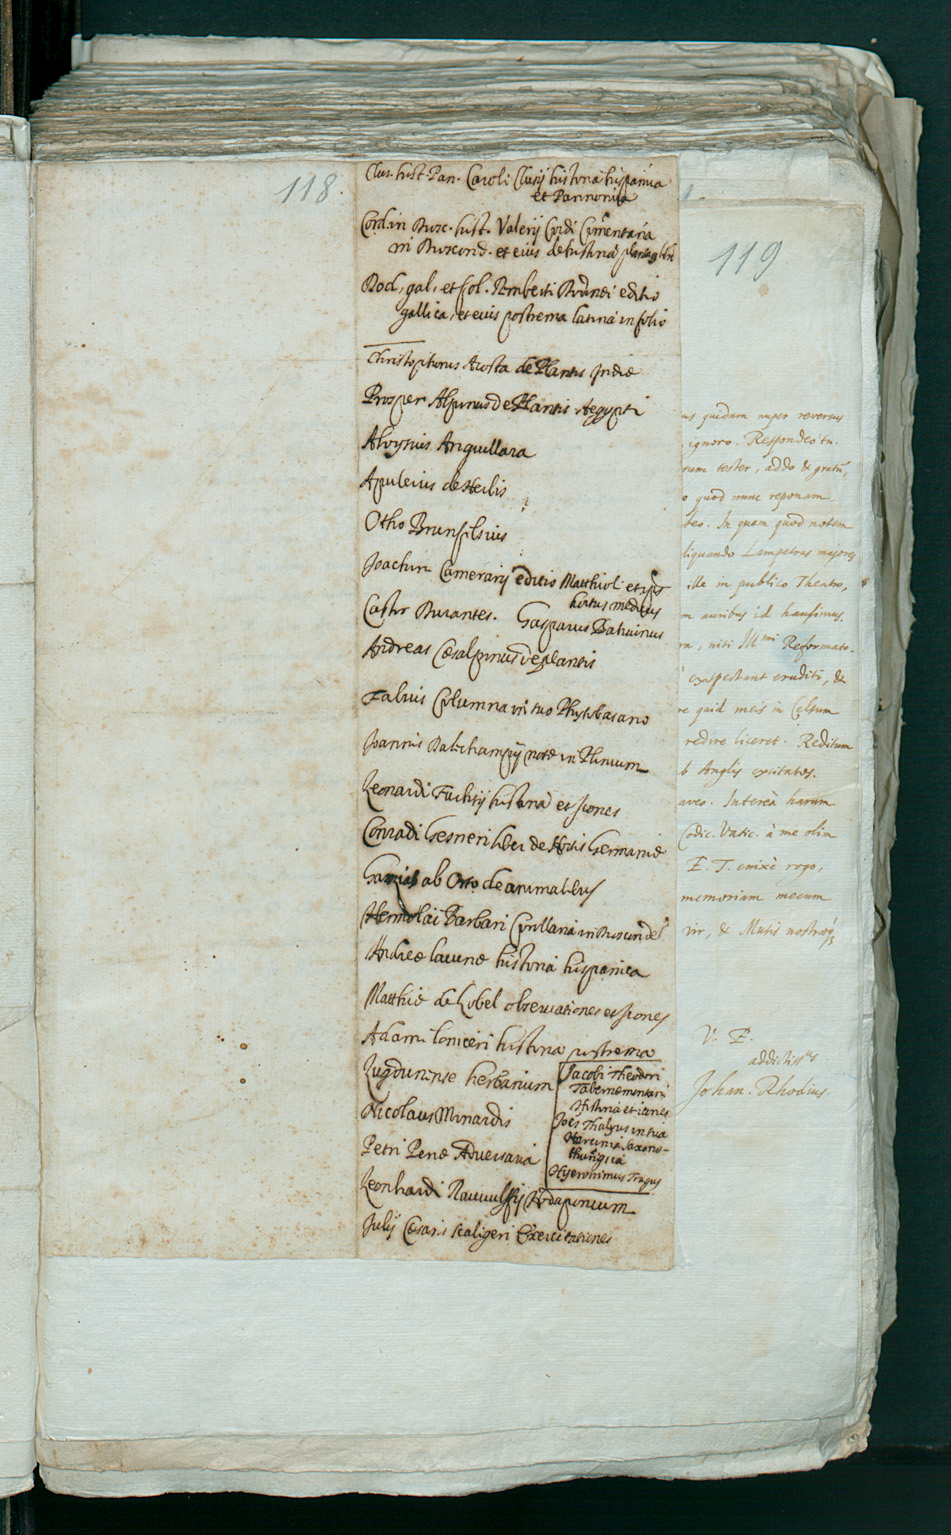 118.
Clus. hist. Pan. Caroli Clusij historia hispanica
et Pannonica
Cord. in Diosc. hist. Valerij Cordi Comentaria
in Dioscorid. et eius de historia plantar libri
Dod. gal. et fol. Remberti Dodonei editio
gallica, et eius postrema latina in folio
Christophorus Acosta de Plantis Indiæ
Prosper Alpinus de Plantis Aegypti
Aloysius Anguillara
Apuleius de Herbis
Otho Brunfelsius
Joachim Camerarij editio Matthioli et eius
hortus medicus
Castor Durantes. Gasparus Bahuinus
Andreas Cæsalpinus de plantis
Fabius Columna in suo Phytobasano
Joannis Dalechampij notæ in Plinium
Leonardi Fuchsij historia et icones
Conradi Gesneri liber de Hortis Germaniæ
Garzias ab Orto de aromatibus
Hermolai Barbari Corollaria in Dioscoride
Andreæ lacunæ historia hispanica
Matthiæ de Lobel observationes et icones
Adami loniceri historia postrema
Lugdunense herbarium
Jacobi Theodori
Tabernemontani
Historia et icones
Joes Thalius in sua
Harcinia saxono-
thuringica
Hyeronimus Tragus
Nicolaus Monardis
Petri Penæ Adversaria
Leonhardi Rauwolfij Hodaporicum
Julij Cæsaris scaligeri Exercitationes
119
us quidam nuper reversus
ignoro. Respondeo tn.
rum tester, addo & gratū,
o quod nunc reponam
beo. In quem quod notem
liquando Lampetras majores
ille in publico Theatro,
m auribus id hausimus.
ra, niti Illmi Reformato-
exspectant eruditi, &
re quid meis in Celsum
redire liceret. Reditum
b Anglis excitatos.
aveo. Intereà harum
Codic. Vatic. à me olim
E. T. enixè rogo,
memoriam mecum
vir, & Musis nostris
V. E.
addictissus
Johan. Rhodius.